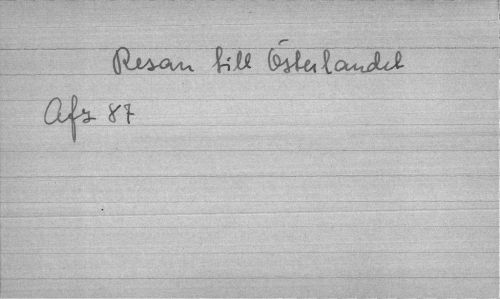 Resan till Österlandet
Afz 87